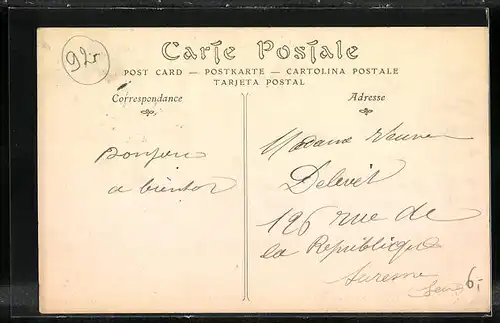 92r
Carte Postale
POST CARD — POSTKARTE — CARTOLINA POSTALE
TARJETA POSTAL
Correspondance
Adresse
Bonjour
a bientot
Madame Veuve
Delevet
126 rue de
la Republique
Suresne
Seine
6,-